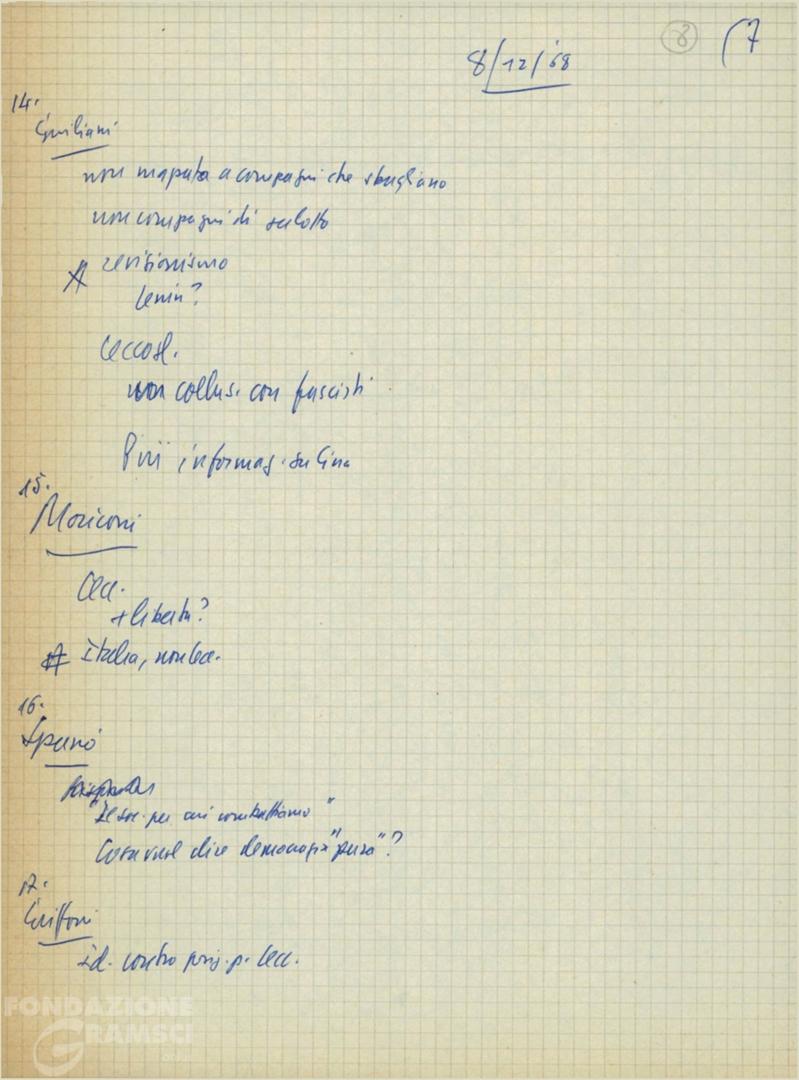 8 (7
8/12/'68
14.
Giuliani
non risposta a compagni che sbagliano
non compagni di salotto
revisionismo
Lenin?
Cecosl.
non collus. con fascisti
Più informaz. su Cina
15.
Moriconi
Cec.
+ libertà?
Italia, non Cec.
16.
Spanò
"Il soc. per cui combattiamo"
Cosa vuol dire democrazia "pura"?
17.
Griffoni
Id. contro pos. p. Cec.
FONDAZIONE
GRAMSCI